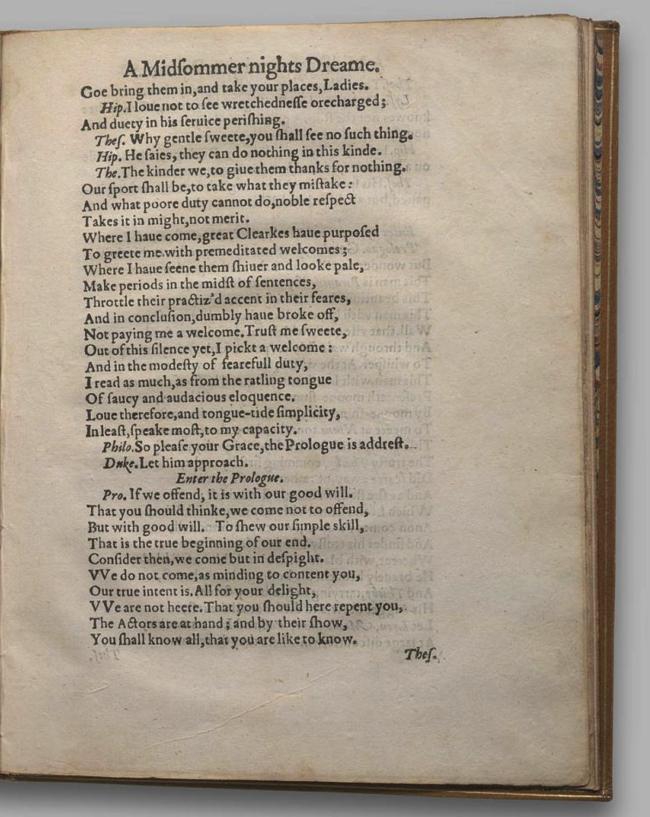 A Midſommer nights Dreame.
Goe bring them in,and take your places,Ladies.
Hip.I loue not to ſee wretchedneſſe orecharged;
And duety in his ſeruice periſhing.
Theſ. Why gentle ſweete,you ſhall ſee no ſuch thing.
Hip. He ſaies, they can do nothing in this kinde.
The.The kinder we,to giue them thanks for nothing.
Our ſport ſhall be,to take what they miſtake:
And what poore duty cannot do,noble reſpect
Takes it in might,not merit.
Where I haue come,great Clearkes haue purpoſed
To greete me with premeditated welcomes;
Where I haue ſeene them ſhiuer and looke pale,
Make periods in the midſt of ſentences,
Throttle their practiz'd accent in their feares,
And in concluſion,dumbly haue broke off,
Not paying me a welcome.Truſt me ſweete,
Out of this ſilence yet,I pickt a welcome:
And in the modeſty of fearefull duty,
I read as much,as from the ratling tongue
Of ſaucy and audacious eloquence.
Loue therefore,and tongue-tide ſimplicity,
In leaſt,ſpeake moſt,to my capacity.
Philo.So pleaſe your Grace,the Prologue is addreſt.
Duke.Let him approach.
Enter the Prologue.
Pro. If we offend, it is with our good will.
That you ſhould thinke,we come not to offend,
But with good will. To ſhew our ſimple skill,
That is the true beginning of our end.
Conſider then,we come but in deſpight.
VVe do not come,as minding to content you,
Our true intent is.All for your delight,
VVe are not heere.That you ſhould here repent you,
The Actors are at hand; and by their ſhow,
You ſhall know all,that you are like to know.
Theſ.